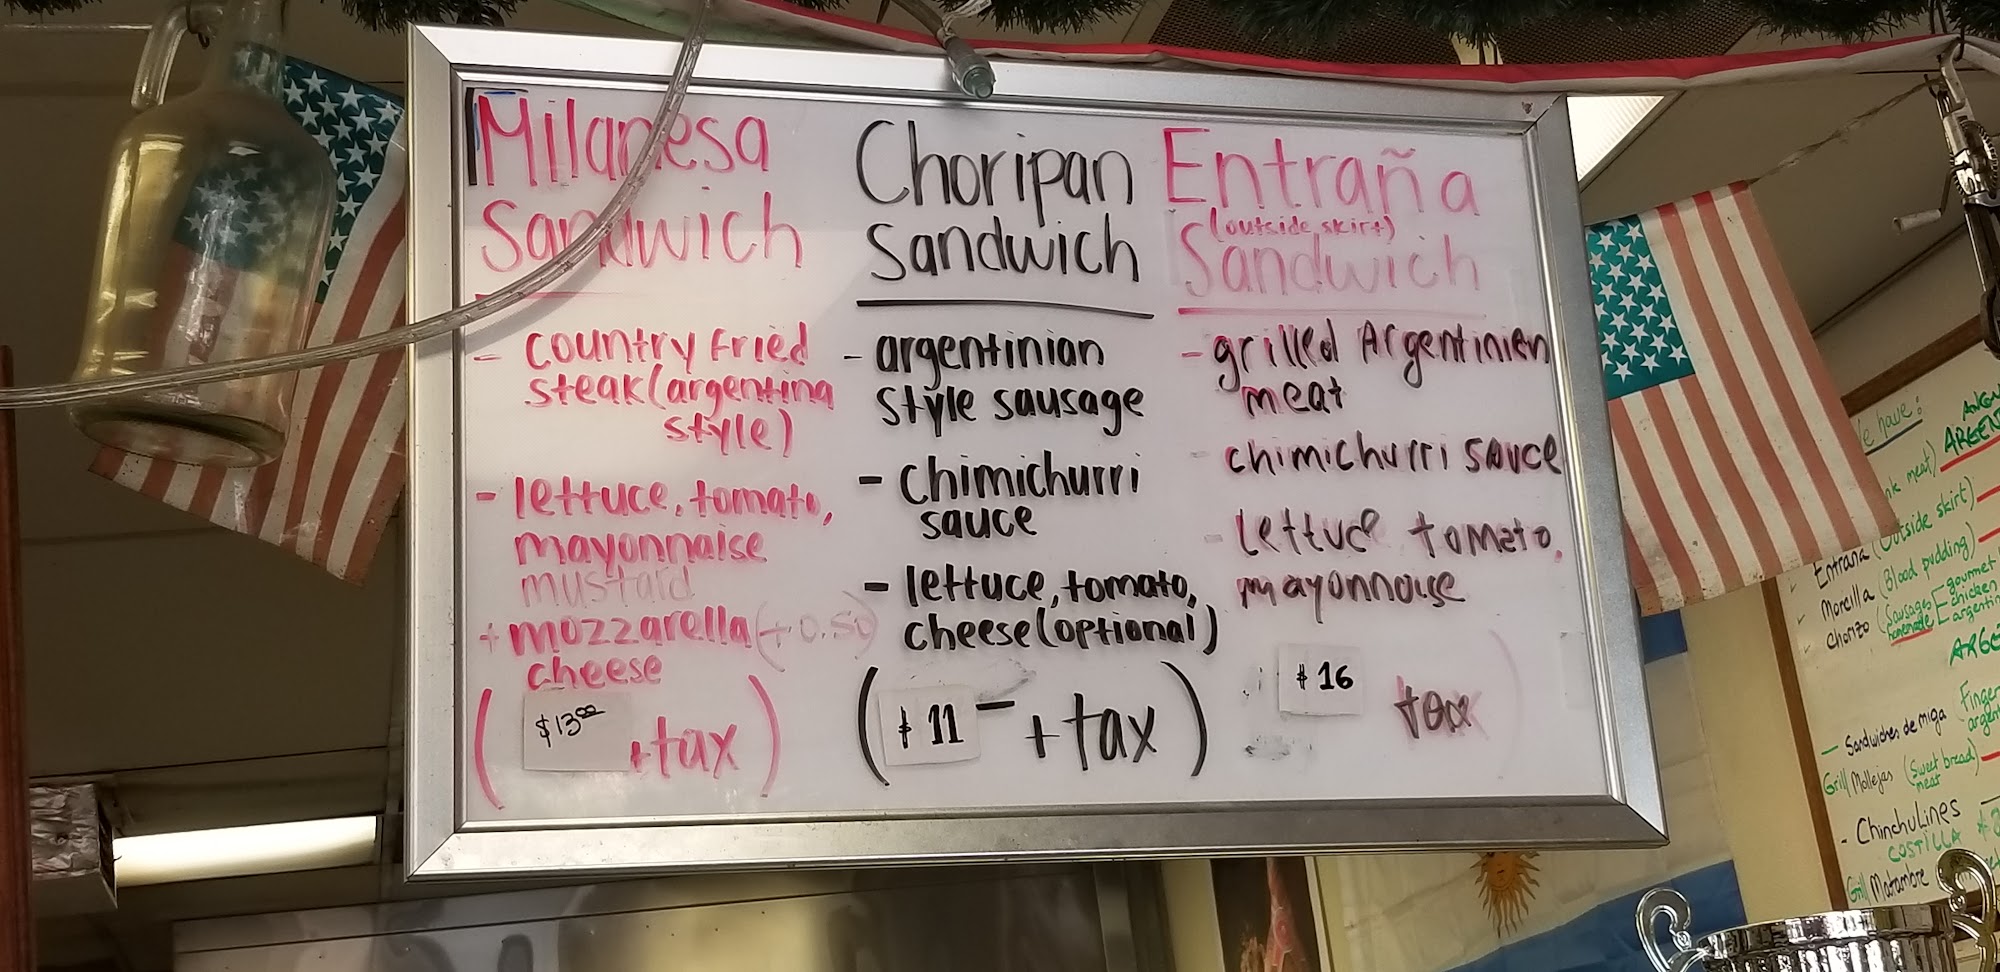 Milanesa
Sandwich
- country fried
steak (argentina
style)
- lettuce, tomato,
mayonnaise
mustard
+ mozzarella (+0.50)
cheese
( $13.00 + tax )
Choripan
Sandwich
- argentinian
style sausage
- chimichurri
sauce
- lettuce, tomato,
cheese (optional)
( $11 - + tax )
Entraña
(outside skirt)
Sandwich
- grilled Argentinien
meat
- chimichurri sauce
- lettuce tomato,
mayonnaise
$16 tax )
have:
meat)
Entraña (Outside skirt)
Morcilla (Blood pudding)
chorizo (Sausages homemade
gourmet
chicken
argentin
- Sandwiches de miga (Finger
argent
Grill Mollejas (Sweet bread)
meat
- Chinchulines
COSTILLA
Grill Matambre